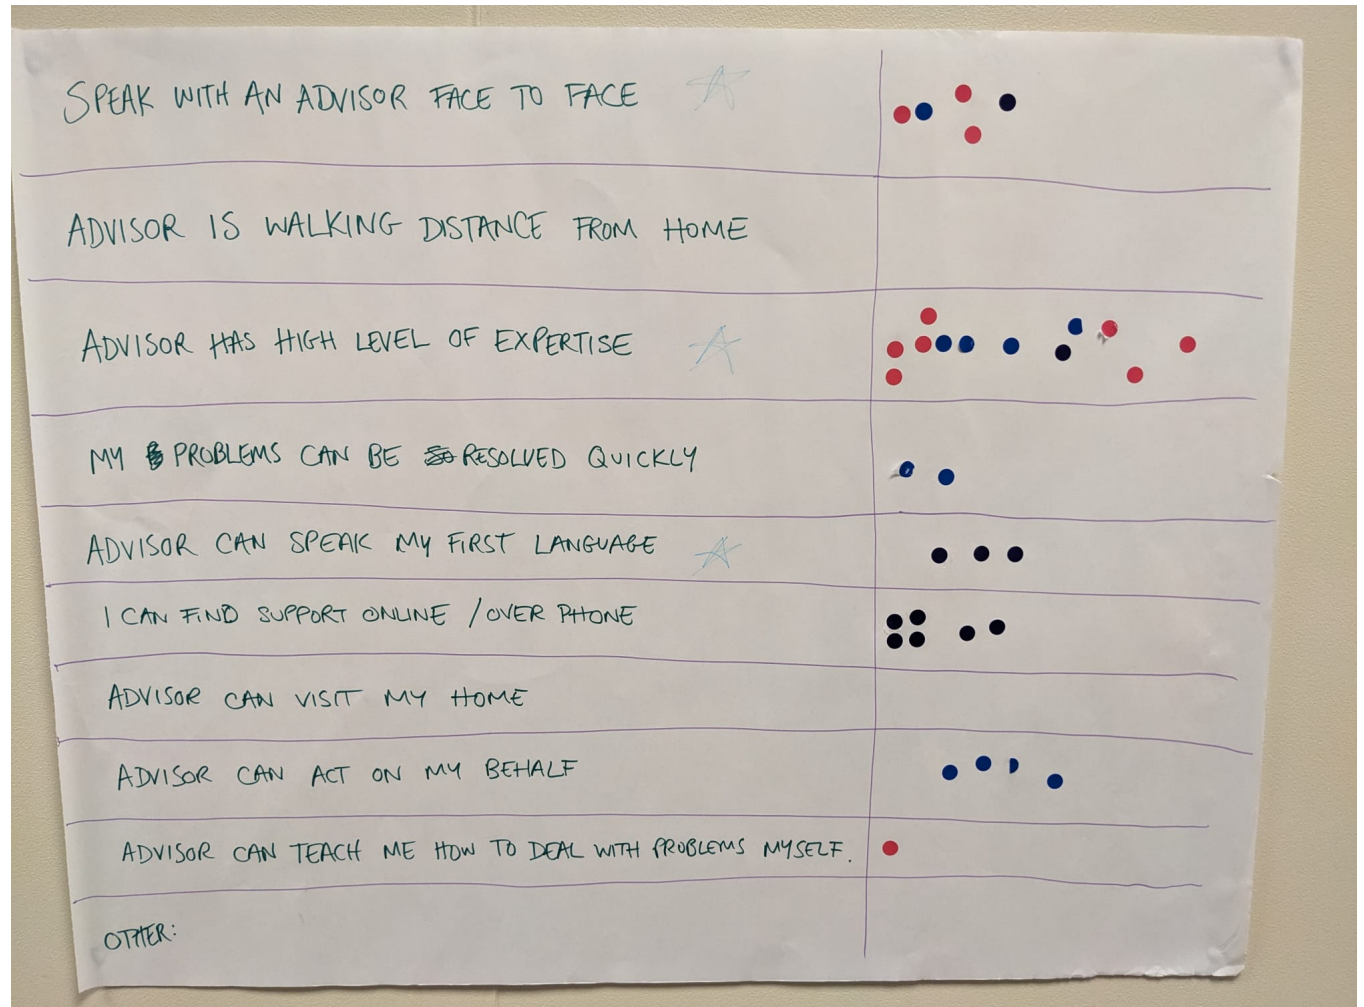 SPEAK WITH AN ADVISOR FACE TO FACE
ADVISOR IS WALKING DISTANCE FROM HOME
ADVISOR HAS HIGH LEVEL OF EXPERTISE
MY PROBLEMS CAN BE RESOLVED QUICKLY
ADVISOR CAN SPEAK MY FIRST LANGUAGE
I CAN FIND SUPPORT ONLINE / OVER PHONE
ADVISOR CAN VISIT MY HOME
ADVISOR CAN ACT ON MY BEHALF
ADVISOR CAN TEACH ME HOW TO DEAL WITH PROBLEMS MYSELF.
OTHER: